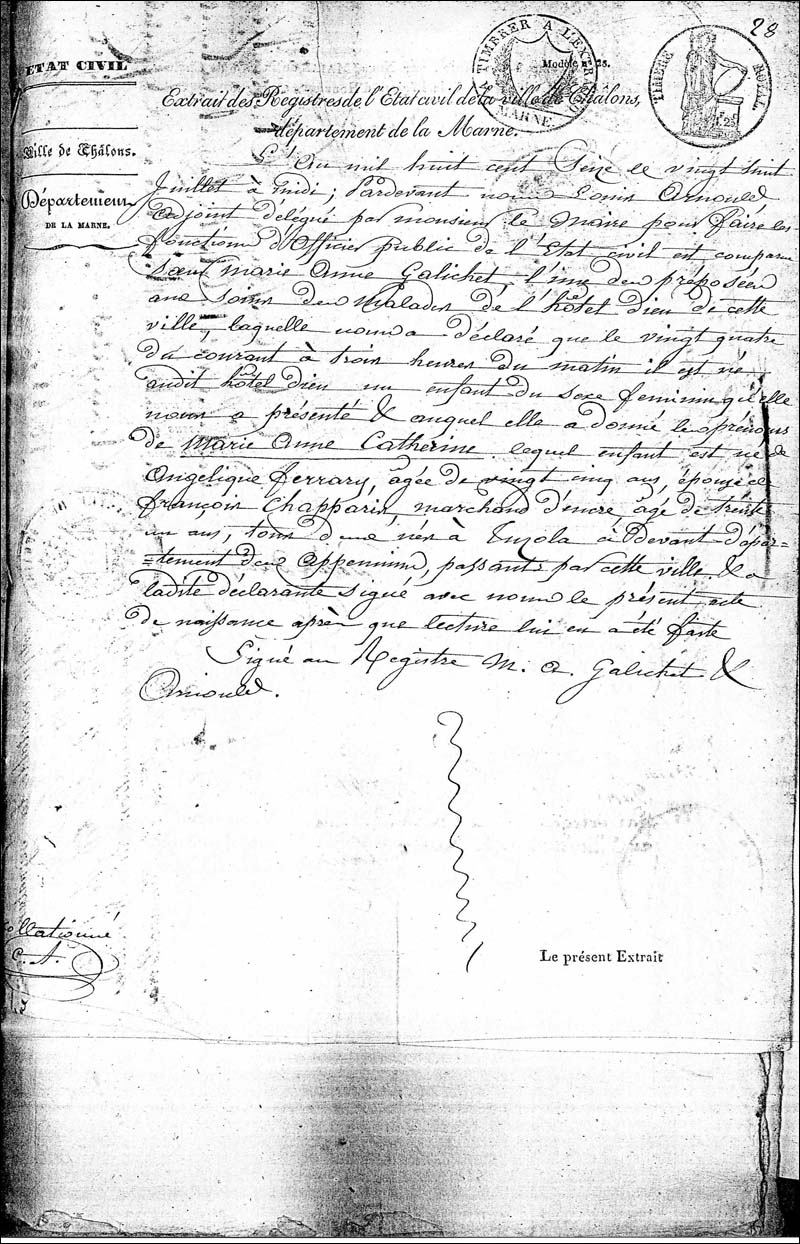 28
ETAT CIVIL
Ville de Châlons.
Département
DE LA MARNE.
A TIMBRER A L'EXTR
MARNE
Modèle n° 23.
TIMBRE ROYAL
Extrait des Registres de l'Etat civil de la ville de Châlons,
département de la Marne.
L'an mil huit cent Seize le vingt huit
Juillet à midi ; Pardevant nous Louis Arnould
adjoint délégué par monsieur le Maire pour faire les
fonctions d'Officier public de l'Etat civil est comparu
Sœur marie Anne Galichet, l'une des préposées
aux soins des Malades de l'hôtel Dieu de cette
ville, laquelle nous a déclaré que le vingt quatre
du courant à trois heures du matin il est né
audit hôtel Dieu un enfant du sexe feminin qu'elle
nous a présenté & auquel elle a donné les prénoms
de Marie Anne Catherine lequel enfant est né de
Angelique ferrary, âgée de vingt cinq ans, épouse de
françois Chapparis, marchand d'encre âgé de trente
un ans, tous deux nés à ci Devant dépar=
=tement des appennins, passants par cette ville. & a
ladite déclarante signé avec nous le présent acte
de naissance après que lecture lui en a été faite
Signé au Registre M. A. Galichet &
Arnould.
Collationné
C. A.
Le présent Extrait